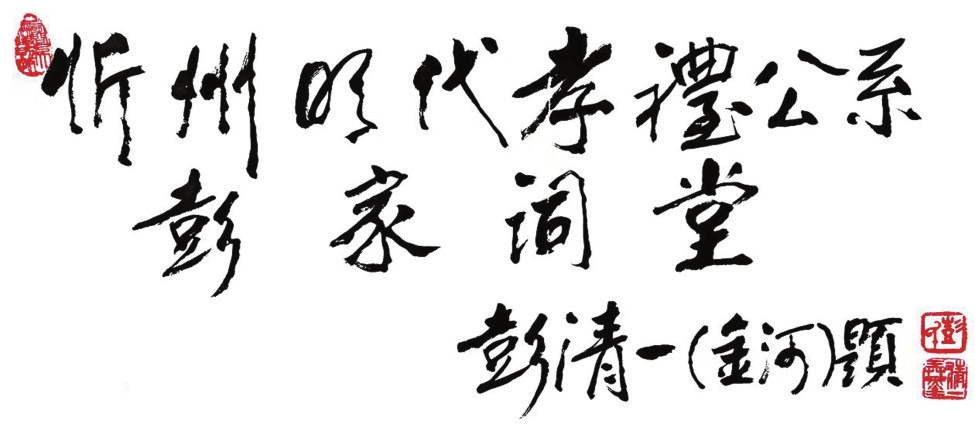 忻州明代孝禮公系
彭家祠堂
彭清一(金河)題